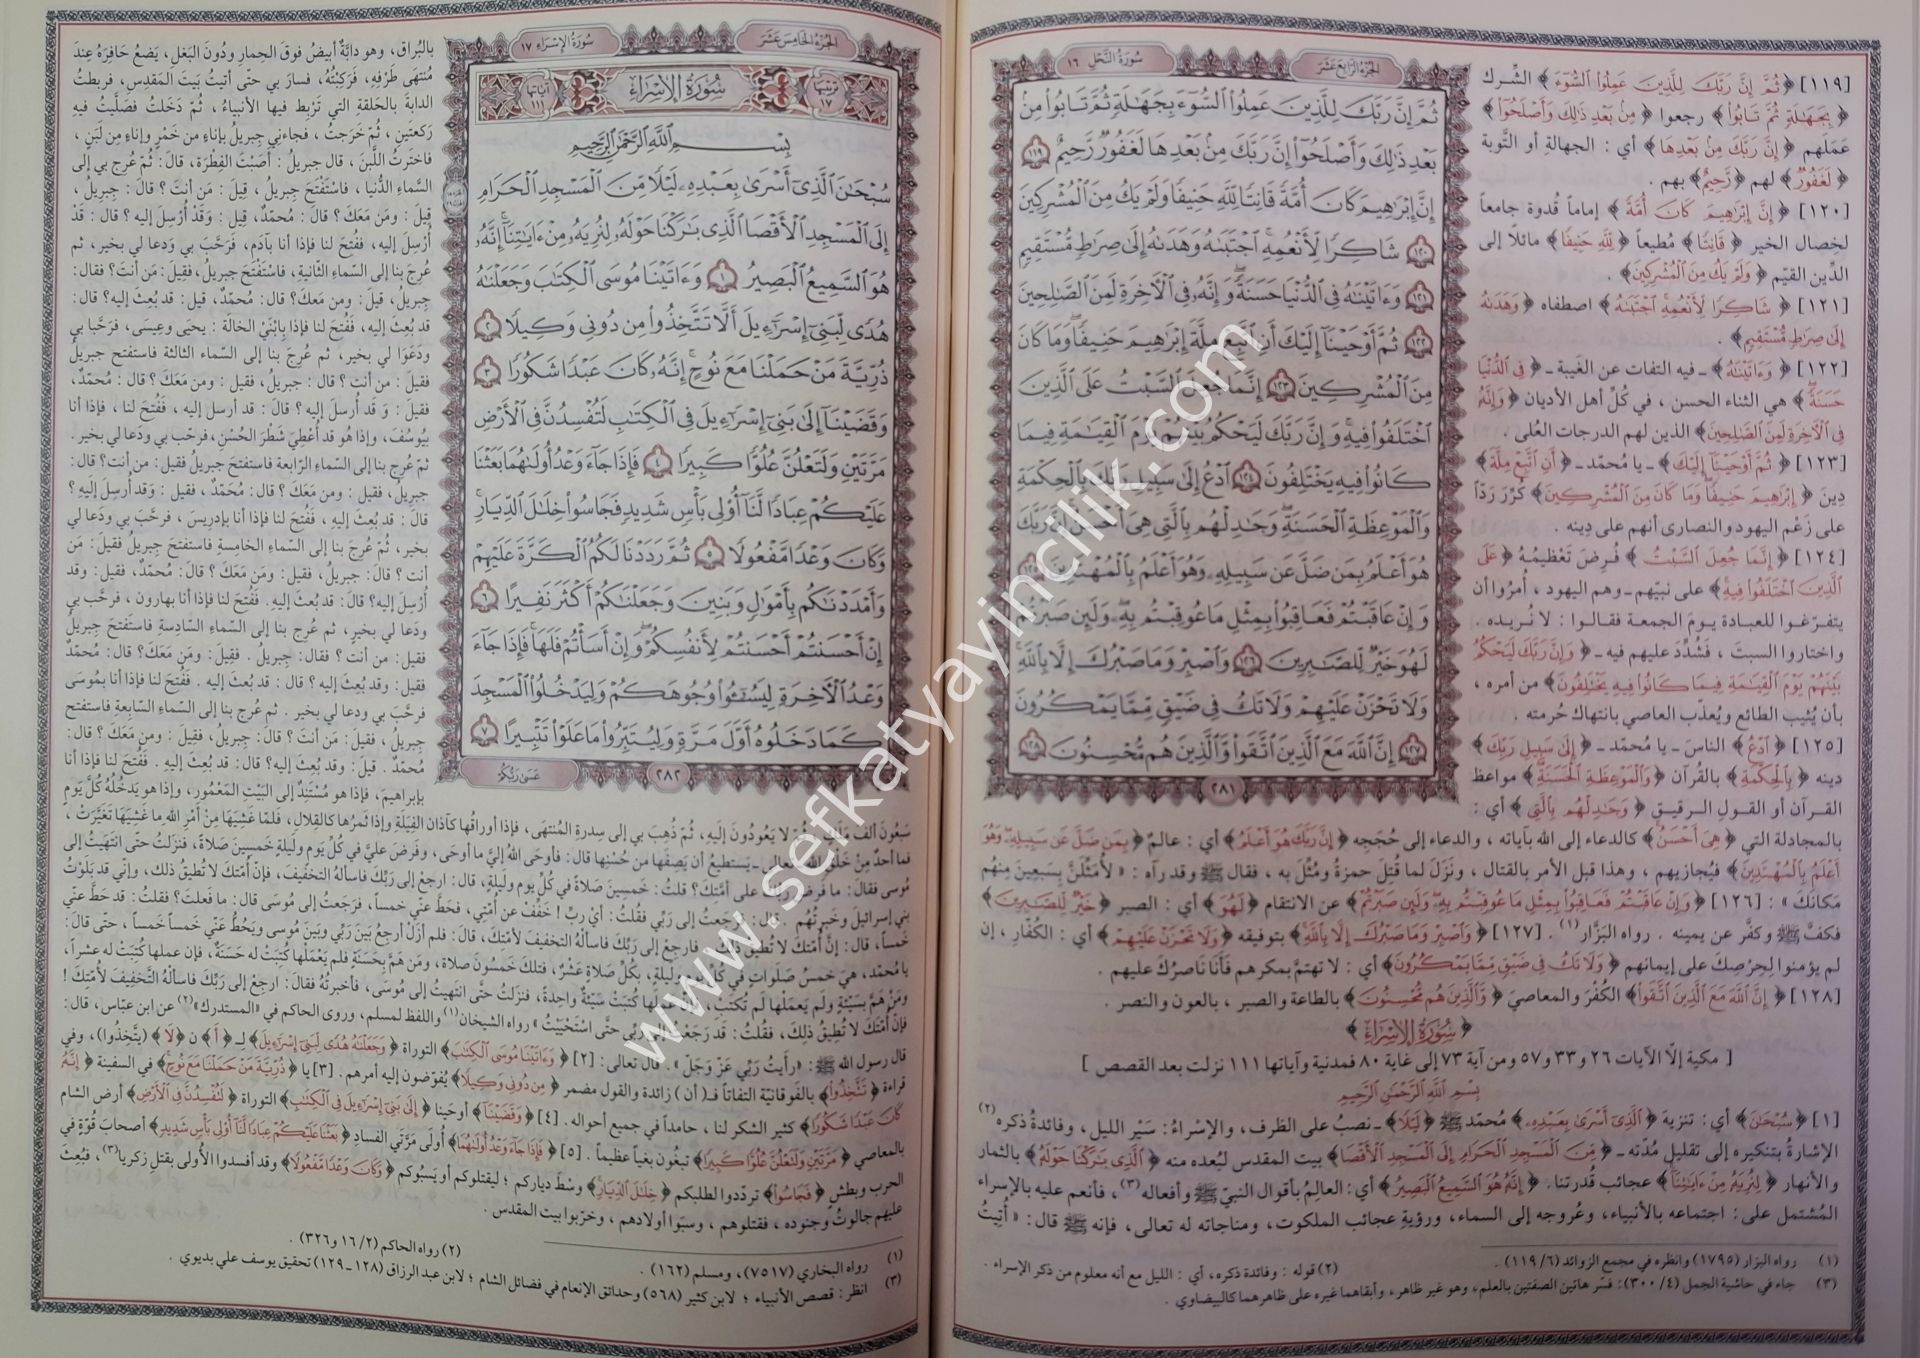 الجزء الرابع عشر
سورة النحل ١٦
ثُمَّ إِنَّ رَبَّكَ لِلَّذِينَ عَمِلُوا۟ ٱلسُّوٓءَ بِجَهَٰلَةٍ ثُمَّ تَابُوا۟ مِنۢ
بَعْدِ ذَٰلِكَ وَأَصْلَحُوٓا۟ إِنَّ رَبَّكَ مِنۢ بَعْدِهَا لَغَفُورٌ رَّحِيمٌ ١١٩
إِنَّ إِبْرَٰهِيمَ كَانَ أُمَّةً قَانِتًا لِّلَّهِ حَنِيفًا وَلَمْ يَكُ مِنَ ٱلْمُشْرِكِينَ
١٢٠ شَاكِرًا لِّأَنْعُمِهِ ٱجْتَبَىٰهُ وَهَدَىٰهُ إِلَىٰ صِرَٰطٍ مُّسْتَقِيمٍ
١٢١ وَءَاتَيْنَٰهُ فِى ٱلدُّنْيَا حَسَنَةً وَإِنَّهُۥ فِى ٱلْءَاخِرَةِ لَمِنَ ٱلصَّٰلِحِينَ
١٢٢ ثُمَّ أَوْحَيْنَآ إِلَيْكَ أَنِ ٱتَّبِعْ مِلَّةَ إِبْرَٰهِيمَ حَنِيفًا وَمَا كَانَ
مِنَ ٱلْمُشْرِكِينَ ١٢٣ إِنَّمَا جُعِلَ ٱلسَّبْتُ عَلَى ٱلَّذِينَ
ٱخْتَلَفُوا۟ فِيهِ وَإِنَّ رَبَّكَ لَيَحْكُمُ بَيْنَهُمْ يَوْمَ ٱلْقِيَٰمَةِ فِيمَا
كَانُوا۟ فِيهِ يَخْتَلِفُونَ ١٢٤ ٱدْعُ إِلَىٰ سَبِيلِ رَبِّكَ بِٱلْحِكْمَةِ
وَٱلْمَوْعِظَةِ ٱلْحَسَنَةِ وَجَٰدِلْهُم بِٱلَّتِى هِىَ أَحْسَنُ إِنَّ رَبَّكَ
هُوَ أَعْلَمُ بِمَن ضَلَّ عَن سَبِيلِهِۦ وَهُوَ أَعْلَمُ بِٱلْمُهْتَدِينَ ١٢٥
وَإِنْ عَاقَبْتُمْ فَعَاقِبُوا۟ بِمِثْلِ مَا عُوقِبْتُم بِهِۦ وَلَئِن صَبَرْتُمْ
لَهُوَ خَيْرٌ لِّلصَّٰبِرِينَ ١٢٦ وَٱصْبِرْ وَمَا صَبْرُكَ إِلَّا بِٱللَّهِ
وَلَا تَحْزَنْ عَلَيْهِمْ وَلَا تَكُ فِى ضَيْقٍ مِّمَّا يَمْكُرُونَ
١٢٧ إِنَّ ٱللَّهَ مَعَ ٱلَّذِينَ ٱتَّقَوا۟ وَّٱلَّذِينَ هُم مُّحْسِنُونَ ١٢٨
٢٨١
[١١٩] ﴿ثُمَّ إِنَّ رَبَّكَ لِلَّذِينَ عَمِلُوا۟ ٱلسُّوٓءَ﴾ الشِّرك
﴿بِجَهَٰلَةٍ ثُمَّ تَابُوا۟﴾ رجعوا ﴿مِنۢ بَعْدِ ذَٰلِكَ وَأَصْلَحُوٓا۟﴾
عَمَلهم ﴿إِنَّ رَبَّكَ مِنۢ بَعْدِهَا﴾ أي : الجهالة أو التَّوبة
﴿لَغَفُورٌ﴾ لهم ﴿رَّحِيمٌ﴾ بهم .
[١٢٠] ﴿إِنَّ إِبْرَٰهِيمَ كَانَ أُمَّةً﴾ إماماً قدوة جامعاً
لخِصال الخير ﴿قَانِتًا﴾ مُطيعاً ﴿لِّلَّهِ حَنِيفًا﴾ مائلًا إلى
الدِّين القيِّم ﴿وَلَمْ يَكُ مِنَ ٱلْمُشْرِكِينَ﴾ .
[١٢١] ﴿شَاكِرًا لِّأَنْعُمِهِ ٱجْتَبَىٰهُ﴾ اصطفاه ﴿وَهَدَىٰهُ
إِلَىٰ صِرَٰطٍ مُّسْتَقِيمٍ﴾ .
[١٢٢] ﴿وَءَاتَيْنَٰهُ﴾ ـ فيه التفات عن الغَيبة ـ ﴿فِى ٱلدُّنْيَا
حَسَنَةً﴾ هي الثناء الحسن ، في كُلِّ أهل الأديان ﴿وَإِنَّهُۥ
فِى ٱلْءَاخِرَةِ لَمِنَ ٱلصَّٰلِحِينَ﴾ الذين لهم الدرجات العُلى .
[١٢٣] ﴿ثُمَّ أَوْحَيْنَآ إِلَيْكَ﴾ ـ يا محُمّد ـ ﴿أَنِ ٱتَّبِعْ مِلَّةَ﴾
دِينَ ﴿إِبْرَٰهِيمَ حَنِيفًا وَمَا كَانَ مِنَ ٱلْمُشْرِكِينَ﴾ كُرِّرَ رَدّاً
على زَعْم اليهود والنصارى أنهم على دِينه .
[١٢٤] ﴿إِنَّمَا جُعِلَ ٱلسَّبْتُ﴾ فُرِضَ تَعْظيمُهُ ﴿عَلَى
ٱلَّذِينَ ٱخْتَلَفُوا۟ فِيهِ﴾ على نبيِّهم ـ وهم اليهود ، أُمِرُوا أن
يتفرّغوا للعبادة يومَ الجمعة فقالوا : لا نُريده .
واختاروا السبتَ ، فشُدِّدَ عليهم فيه ـ ﴿وَإِنَّ رَبَّكَ لَيَحْكُمُ
بَيْنَهُمْ يَوْمَ ٱلْقِيَٰمَةِ فِيمَا كَانُوا۟ فِيهِ يَخْتَلِفُونَ﴾ من أمره ،
بأن يُثيب الطائع ويُعذّب العاصي بانتهاك حُرمته .
[١٢٥] ﴿ٱدْعُ﴾ الناسَ ـ يا محمد ـ ﴿إِلَىٰ سَبِيلِ رَبِّكَ﴾
دينه ﴿بِٱلْحِكْمَةِ﴾ بالقُرآن ﴿وَٱلْمَوْعِظَةِ ٱلْحَسَنَةِ﴾ مواعظ
القرآن أو القول الرقيق ﴿وَجَٰدِلْهُم بِٱلَّتِى﴾ أي :
بالمجادلة التي ﴿هِىَ أَحْسَنُ﴾ كالدعاء إلى الله بآياته ، والدعاء إلى حُججه ﴿إِنَّ رَبَّكَ هُوَ أَعْلَمُ﴾ أي : عالمٌ ﴿بِمَن ضَلَّ عَن سَبِيلِهِۦ وَهُوَ
أَعْلَمُ بِٱلْمُهْتَدِينَ﴾ فيُجازيهم ، وهذا قبل الأمر بالقتال ، ونَزَلَ لما قُتِلَ حمزةُ ومُثِّل به ، فقال ﷺ وقد رآه : «لأُمثِّلنَّ بِسَبعِينَ مِنهُم
مَكانَكَ» : [١٢٦] ﴿وَإِنْ عَاقَبْتُمْ فَعَاقِبُوا۟ بِمِثْلِ مَا عُوقِبْتُم بِهِۦ وَلَئِن صَبَرْتُمْ﴾ عن الانتقام ﴿لَهُوَ﴾ أي : الصبر ﴿خَيْرٌ لِّلصَّٰبِرِينَ﴾
فكفَّ ﷺ وكفَّر عن يمينه . رواه البزّار(١) . [١٢٧] ﴿وَٱصْبِرْ وَمَا صَبْرُكَ إِلَّا بِٱللَّهِ﴾ بتوفيقه ﴿وَلَا تَحْزَنْ عَلَيْهِمْ﴾ أي : الكفّار ، إن
لم يؤمنوا لِحِرْصِكَ على إيمانهم ﴿وَلَا تَكُ فِى ضَيْقٍ مِّمَّا يَمْكُرُونَ﴾ أي : لا تهتمَّ بمكرهم فأنا ناصرُكَ عليهم .
[١٢٨] ﴿إِنَّ ٱللَّهَ مَعَ ٱلَّذِينَ ٱتَّقَوا۟﴾ الكُفْرَ والمعاصيَ ﴿وَّٱلَّذِينَ هُم مُّحْسِنُونَ﴾ بالطاعة والصبر ، بالعون والنصر .
﴿سُورَةُ الإِسْرَاءِ﴾
[ مكية إلّا الآيات ٢٦ و٣٣ و٥٧ ومن آية ٧٣ إلى غاية ٨٠ فمدنية وآياتها ١١١ نزلت بعد القصص ]
بِسْمِ ٱللَّهِ ٱلرَّحْمَٰنِ ٱلرَّحِيمِ
[١] ﴿سُبْحَٰنَ﴾ أي : تنزيه ﴿ٱلَّذِىٓ أَسْرَىٰ بِعَبْدِهِۦ﴾ مُحمّد ﷺ ﴿لَيْلًا﴾ ـ نصبٌ على الظرف ، والإسْرَاءُ : سَيْر الليل ، وفائدةُ ذكره(٢)
الإشارةُ بتنكيره إلى تقليل مُدّته ـ ﴿مِّنَ ٱلْمَسْجِدِ ٱلْحَرَامِ إِلَى ٱلْمَسْجِدِ ٱلْأَقْصَا﴾ بيت المقدس لبُعده منه ﴿ٱلَّذِى بَٰرَكْنَا حَوْلَهُۥ﴾ بالثمار
والأنهار ﴿لِنُرِيَهُۥ مِنْ ءَايَٰتِنَآ﴾ عجائب قُدرتنا . ﴿إِنَّهُۥ هُوَ ٱلسَّمِيعُ ٱلْبَصِيرُ﴾ أي : العالِمُ بأقوال النبيّ ﷺ وأفعاله(٣) ، فأنعم عليه بالإسراء
المُشتمل على : اجتماعه بالأنبياء ، وعُروجه إلى السماء ، ورؤيةِ عجائب الملكوت ، ومناجاته له تعالى ، فإنه ﷺ قال : «أُتِيتُ
(١) رواه البزار (١٧٩٥) وانظره في مجمع الزوائد (٦/ ١١٩) .
(٢) قوله : وفائدة ذكره ، أي : الليل مع أنه معلوم من ذكر الإسراء .
(٣) جاء في حاشية الجمل (٤/ ٣٠٠) : فسّر هاتين الصفتين بالعلم ، وهو غير ظاهر ، وأبقاهما غيره على ظاهرهما كالبيضاوي .
الجزء الخامس عشر
سورة الإسراء ١٧
ترتيبها ١٧
سُورَةُ الإِسْرَاءِ
آياتها ١١١
بِسْمِ ٱللَّهِ ٱلرَّحْمَٰنِ ٱلرَّحِيمِ
سُبْحَٰنَ ٱلَّذِىٓ أَسْرَىٰ بِعَبْدِهِۦ لَيْلًا مِّنَ ٱلْمَسْجِدِ ٱلْحَرَامِ
إِلَى ٱلْمَسْجِدِ ٱلْأَقْصَا ٱلَّذِى بَٰرَكْنَا حَوْلَهُۥ لِنُرِيَهُۥ مِنْ ءَايَٰتِنَآ إِنَّهُۥ
هُوَ ٱلسَّمِيعُ ٱلْبَصِيرُ ١ وَءَاتَيْنَا مُوسَى ٱلْكِتَٰبَ وَجَعَلْنَٰهُ
هُدًى لِّبَنِىٓ إِسْرَٰٓءِيلَ أَلَّا تَتَّخِذُوا۟ مِن دُونِى وَكِيلًا ٢
ذُرِّيَّةَ مَنْ حَمَلْنَا مَعَ نُوحٍ إِنَّهُۥ كَانَ عَبْدًا شَكُورًا ٣
وَقَضَيْنَآ إِلَىٰ بَنِىٓ إِسْرَٰٓءِيلَ فِى ٱلْكِتَٰبِ لَتُفْسِدُنَّ فِى ٱلْأَرْضِ
مَرَّتَيْنِ وَلَتَعْلُنَّ عُلُوًّا كَبِيرًا ٤ فَإِذَا جَآءَ وَعْدُ أُولَىٰهُمَا بَعَثْنَا
عَلَيْكُمْ عِبَادًا لَّنَآ أُو۟لِى بَأْسٍ شَدِيدٍ فَجَاسُوا۟ خِلَٰلَ ٱلدِّيَارِ
وَكَانَ وَعْدًا مَّفْعُولًا ٥ ثُمَّ رَدَدْنَا لَكُمُ ٱلْكَرَّةَ عَلَيْهِمْ
وَأَمْدَدْنَٰكُم بِأَمْوَٰلٍ وَبَنِينَ وَجَعَلْنَٰكُمْ أَكْثَرَ نَفِيرًا ٦
إِنْ أَحْسَنتُمْ أَحْسَنتُمْ لِأَنفُسِكُمْ وَإِنْ أَسَأْتُمْ فَلَهَا فَإِذَا جَآءَ
وَعْدُ ٱلْءَاخِرَةِ لِيَسُۥٓـُٔوا۟ وُجُوهَكُمْ وَلِيَدْخُلُوا۟ ٱلْمَسْجِدَ
كَمَا دَخَلُوهُ أَوَّلَ مَرَّةٍ وَلِيُتَبِّرُوا۟ مَا عَلَوْا۟ تَتْبِيرًا ٧
عَسَىٰ رَبُّكُمْ
٢٨٢
بالبُراق ، وهو دابّةٌ أبيضُ فوقَ الحِمارِ ودُونَ البَغلِ ، يَضعُ حَافِرَهُ عِندَ
مُنتَهى طَرْفِهِ ، فَرَكِبْتُهُ ، فسارَ بي حتّى أتيتُ بَيتَ المَقدِس ، فربطتُ
الدابة بالحَلقةِ التي تَرْبِط فيها الأنبياءُ ، ثُمّ دَخَلتُ فصَلَّيتُ فيه
رَكعتينِ ، ثُمّ خَرَجتُ ، فجاءني جِبريلُ بإناءٍ من خَمْرٍ وإناءٍ مِن لَبَنٍ ،
فاختَرتُ اللَّبنَ ، قال جبريلُ : أصَبْتَ الفِطرَة ، قالَ : ثُمّ عُرج بي إلى
السَّماءِ الدُّنيا ، فاسْتَفْتَحَ جِبريلُ ، قِيلَ : مَن أنتَ ؟ قالَ : جِبريلُ ،
قِيلَ : ومَن مَعَكَ ؟ قالَ : مُحمّدٌ ، قيل : وَقَدْ أُرْسِلَ إليه ؟ قال : قَدْ
أُرسِلَ إليه ، ففُتِحَ لنا فإذا أنا بآدَم ، فَرَحَّبَ بي ودَعا لي بخيرٍ ، ثم
عُرجَ بنا إلى السّماءِ الثانيةِ ، فاسْتَفْتَحَ جبريلُ ، فقِيلَ : مَن أنتَ ؟ فقال :
جبريلُ ، قيلَ : ومن مَعكَ ؟ قال : مُحمّدٌ ، قيل : قد بُعِثَ إليه ؟ قال :
قد بُعث إليه ، ففُتحَ لنا فإذا بابْنَيْ الخالة : يحيى وعيسى ، فرَحَّبا بي
ودَعَوَا لي بخير ، ثم عُرِجَ بنا إلى السّماء الثالثة فاستفتح جبريلُ
فقيل : من أنت ؟ قال : جبريلُ ، فقيل : ومن مَعَكَ ؟ قال : مُحمّدٌ ،
فقيل : وَقد أُرسلَ إليه ؟ قالَ : قد أرسل إليه ، ففُتحَ لنا ، فإذا أنا
بيُوسُفَ ، وإذا هُو قد أُعْطِيَ شَطْرَ الحُسْنِ ، فرحّب بي ودَعا لي بخير .
ثمّ عُرجَ بنا إلى السّماءِ الرّابعة فاستفتحَ جبريلُ فقيل : من أنت ؟ قال :
جبريلُ ، فقيل : ومَن مَعَكَ ؟ قالَ : مُحمّد ، فقيل : وَقد أُرسِلَ إليه ؟
قال : قد بُعثَ إليه ، ففُتحَ لنا فإذا أنا بإدريس ، فرحّبَ بي ودعا لي
بخير ، ثُمّ عُرجَ بنا إلى السّماءِ الخامسةِ فاستفتح جبريلُ فقيل : من
أنت ؟ قال : جبريلُ ، فقيل : ومَن مَعَكَ ؟ قال : مُحمّدٌ ، فقيل : وقد
أُرْسِلَ إليه ؟ قال : قد بُعثَ إليه . ففُتحَ لنا فإذا أنا بهارون ، فرحّب بي
ودَعا لي بخيرٍ ، ثم عُرج بنا إلى السّماءِ السّادِسةِ فاستفتَحَ جِبريلُ
فقيل : من أنت ؟ فقال : جبريلُ . فقِيلَ : ومَن مَعكَ ؟ قالَ : مُحمّدٌ
فقيل : وقد بُعثَ إليه ؟ قال : قد بُعث إليه . ففُتحَ لنا فإذا أنا بمُوسَى
فرحّبَ بي ودعا لي بخير . ثم عُرج بنا إلى السّماءِ السّابعةِ فاستفتح
جبريلُ ، فقيل : مَن أنتَ ؟ قالَ : جبريلُ ، فقيل : ومن مَعكَ ؟ قال :
مُحمّدٌ . قيل : وقد بُعثَ إليه ؟ قال : قد بُعِثَ إليه . ففُتحَ لنا فإذا أنا
بإبراهيمَ ، فإذا هو مُسْتَنِدٌ إلى البَيْتِ المَعْمُورِ ، وإذا هو يَدخُلُهُ كُلَّ يَومٍ
سَبعُونَ ألفَ مَلَكٍ ثُمّ لا يَعودُونَ إليه ، ثُمّ ذُهِبَ بي إلى سِدرةِ المُنتهَى ، فإذا أوراقُها كآذان الفِيَلَةِ وإذا ثَمرُها كالقِلالِ ، فلمّا غَشِيَهَا مِنْ أمْرِ اللهِ ما غَشِيَهَا تَغَيَّرَتْ ،
فما أحدٌ مِنْ خَلْقِ اللهِ تعالى ـ يَستطيعُ أن يَصِفَها من حُسْنِها قال : فأوحَى اللهُ إليَّ ما أوحَى ، وفَرَضَ عليَّ في كُلِّ يَومٍ وليلَةٍ خَمسينَ صَلاةً ، فنزَلتُ حتّى انتَهَيتُ إلى
مُوسى فقالَ : ما فَرَضَ ربُّكَ على أُمّتِكَ ؟ قلتُ : خَمسِينَ صَلاةً في كُلِّ يومٍ وليلةٍ ، قالَ : ارجِعْ إلى رَبِّكَ فاسألهُ التخفيف ، فإنّ أُمّتَكَ لا تُطيقُ ذلك ، وإنّي قد بَلَوْتُ
بني إسرائيلَ وخَبرتُهُم . قال : فرَجَعتُ إلى رَبّي فقُلتُ : أيْ ربِّ ! خَفِّفْ عن أُمّتي ، فحَطَّ عنّي خَمساً ، فرَجَعتُ إلى مُوسَى قال : ما فَعلتَ ؟ فقُلتُ : قد حَطَّ عنّي
خَمساً ، قال : إنَّ أُمّتكَ لا تُطيقُ ذلك . فارجِع إلى رَبّكَ فاسألهُ التخفيفَ لأُمّتِكَ ، قالَ : فلَم أزَلْ أرجِعُ بَينَ رَبِّي وبَينَ مُوسى ويَحُطُّ عنّي خَمساً خَمساً ، حتّى قالَ :
يا مُحمّد ، هي خَمسُ صَلَواتٍ في كُلِّ يومٍ وليلةٍ ، بكُلِّ صَلاةٍ عَشْرٌ ، فتلكَ خَمسُونَ صلاة ، ومَن هَمَّ بحَسَنةٍ فلَم يَعْمَلْها كُتِبَتْ له حَسَنَةً ، فإن عملها كُتِبَتْ له عَشراً ،
ومَنْ هَمَّ بسَيِّئةٍ ولَم يَعمَلْها لم تُكْتَبْ ، فإن عَمِلَها كُتِبَتْ سَيِّئةً واحِدةً ، فنزَلتُ حتّى انتَهيتُ إلى مُوسَى ، فأخبرتُهُ فقالَ : ارجِعْ إلى رَبِّكَ فاسألهُ التَّخفيفَ لأُمّتِكَ !
فإنّ أُمّتَكَ لا تُطيقُ ذلِكَ ، فقُلتُ : قَد رَجَعْتُ إلى رَبّي حتّى اسْتَحْيَيْتُ » رواه الشيخان(١) واللفظ لمسلم ، وروى الحاكم في «المستدرك»(٢) عن ابن عبّاس ، قال :
قال رسول الله ﷺ : «رأيتُ رَبّي عَزّ وَجَلّ» . قال تعالى : [٢] ﴿وَءَاتَيْنَا مُوسَى ٱلْكِتَٰبَ﴾ التوراة ﴿وَجَعَلْنَٰهُ هُدًى لِّبَنِىٓ إِسْرَٰٓءِيلَ﴾ لـِ ﴿أَ﴾ ن ﴿لَا﴾ (يتَّخذوا) ، وفي
قراءة ﴿تَتَّخِذُوا۟﴾ بالفَوقانيّة التفاتاً فـ (أن) زائدة والقول مضمر ﴿مِن دُونِى وَكِيلًا﴾ يُفوّضون إليه أمرهم . [٣] يا ﴿ذُرِّيَّةَ مَنْ حَمَلْنَا مَعَ نُوحٍ﴾ في السفينة ﴿إِنَّهُۥ
كَانَ عَبْدًا شَكُورًا﴾ كثير الشكر لنا ، حامداً في جميع أحواله . [٤] ﴿وَقَضَيْنَآ﴾ أوحَينا ﴿إِلَىٰ بَنِىٓ إِسْرَٰٓءِيلَ فِى ٱلْكِتَٰبِ﴾ التوراة ﴿لَتُفْسِدُنَّ فِى ٱلْأَرْضِ﴾ أرض الشام
بالمعاصي ﴿مَرَّتَيْنِ وَلَتَعْلُنَّ عُلُوًّا كَبِيرًا﴾ تبغُون بغياً عظيماً . [٥] ﴿فَإِذَا جَآءَ وَعْدُ أُولَىٰهُمَا﴾ أُولى مَرَّتَي الفسادِ ﴿بَعَثْنَا عَلَيْكُمْ عِبَادًا لَّنَآ أُو۟لِى بَأْسٍ شَدِيدٍ﴾ أصحابَ قُوّةٍ في
الحرب وبطشٍ ﴿فَجَاسُوا۟﴾ تردّدوا لطلبكم ﴿خِلَٰلَ ٱلدِّيَارِ﴾ وسْط دياركم ؛ ليقتلوكم أو يَسبُوكم ﴿وَكَانَ وَعْدًا مَّفْعُولًا﴾ وقد أفسدوا الأُولى بقتلِ زكريا(٣) ، فبُعِثَ
عليهم جالوتُ وجنوده ، فقتلوهم ، وسبَوا أولادهم ، وخرّبوا بيت المقدس .
(١) رواه البخاري (٧٥١٧) ، ومسلم (١٦٢) .
(٢) رواه الحاكم (٢/ ١٦ و٣٢٦) .
(٣) انظر : قصص الأنبياء ؛ لابن كثير (٥٦٨) وحدائق الإنعام في فضائل الشام ؛ لابن عبد الرزاق (١٢٨ ـ ١٢٩) تحقيق يوسف علي بديوي .
www.sefkatyayincilik.com